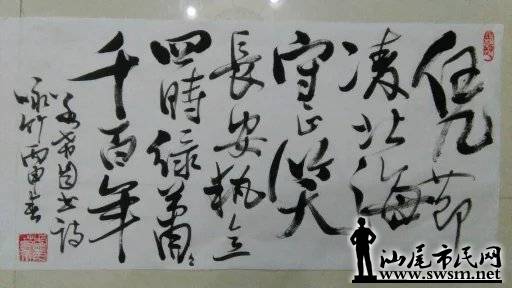 節
凌北海
守正笑
長安執立
四時綠蕭々
千百年
自書詩
咏竹丙申春
汕尾市民网
www.swsm.net